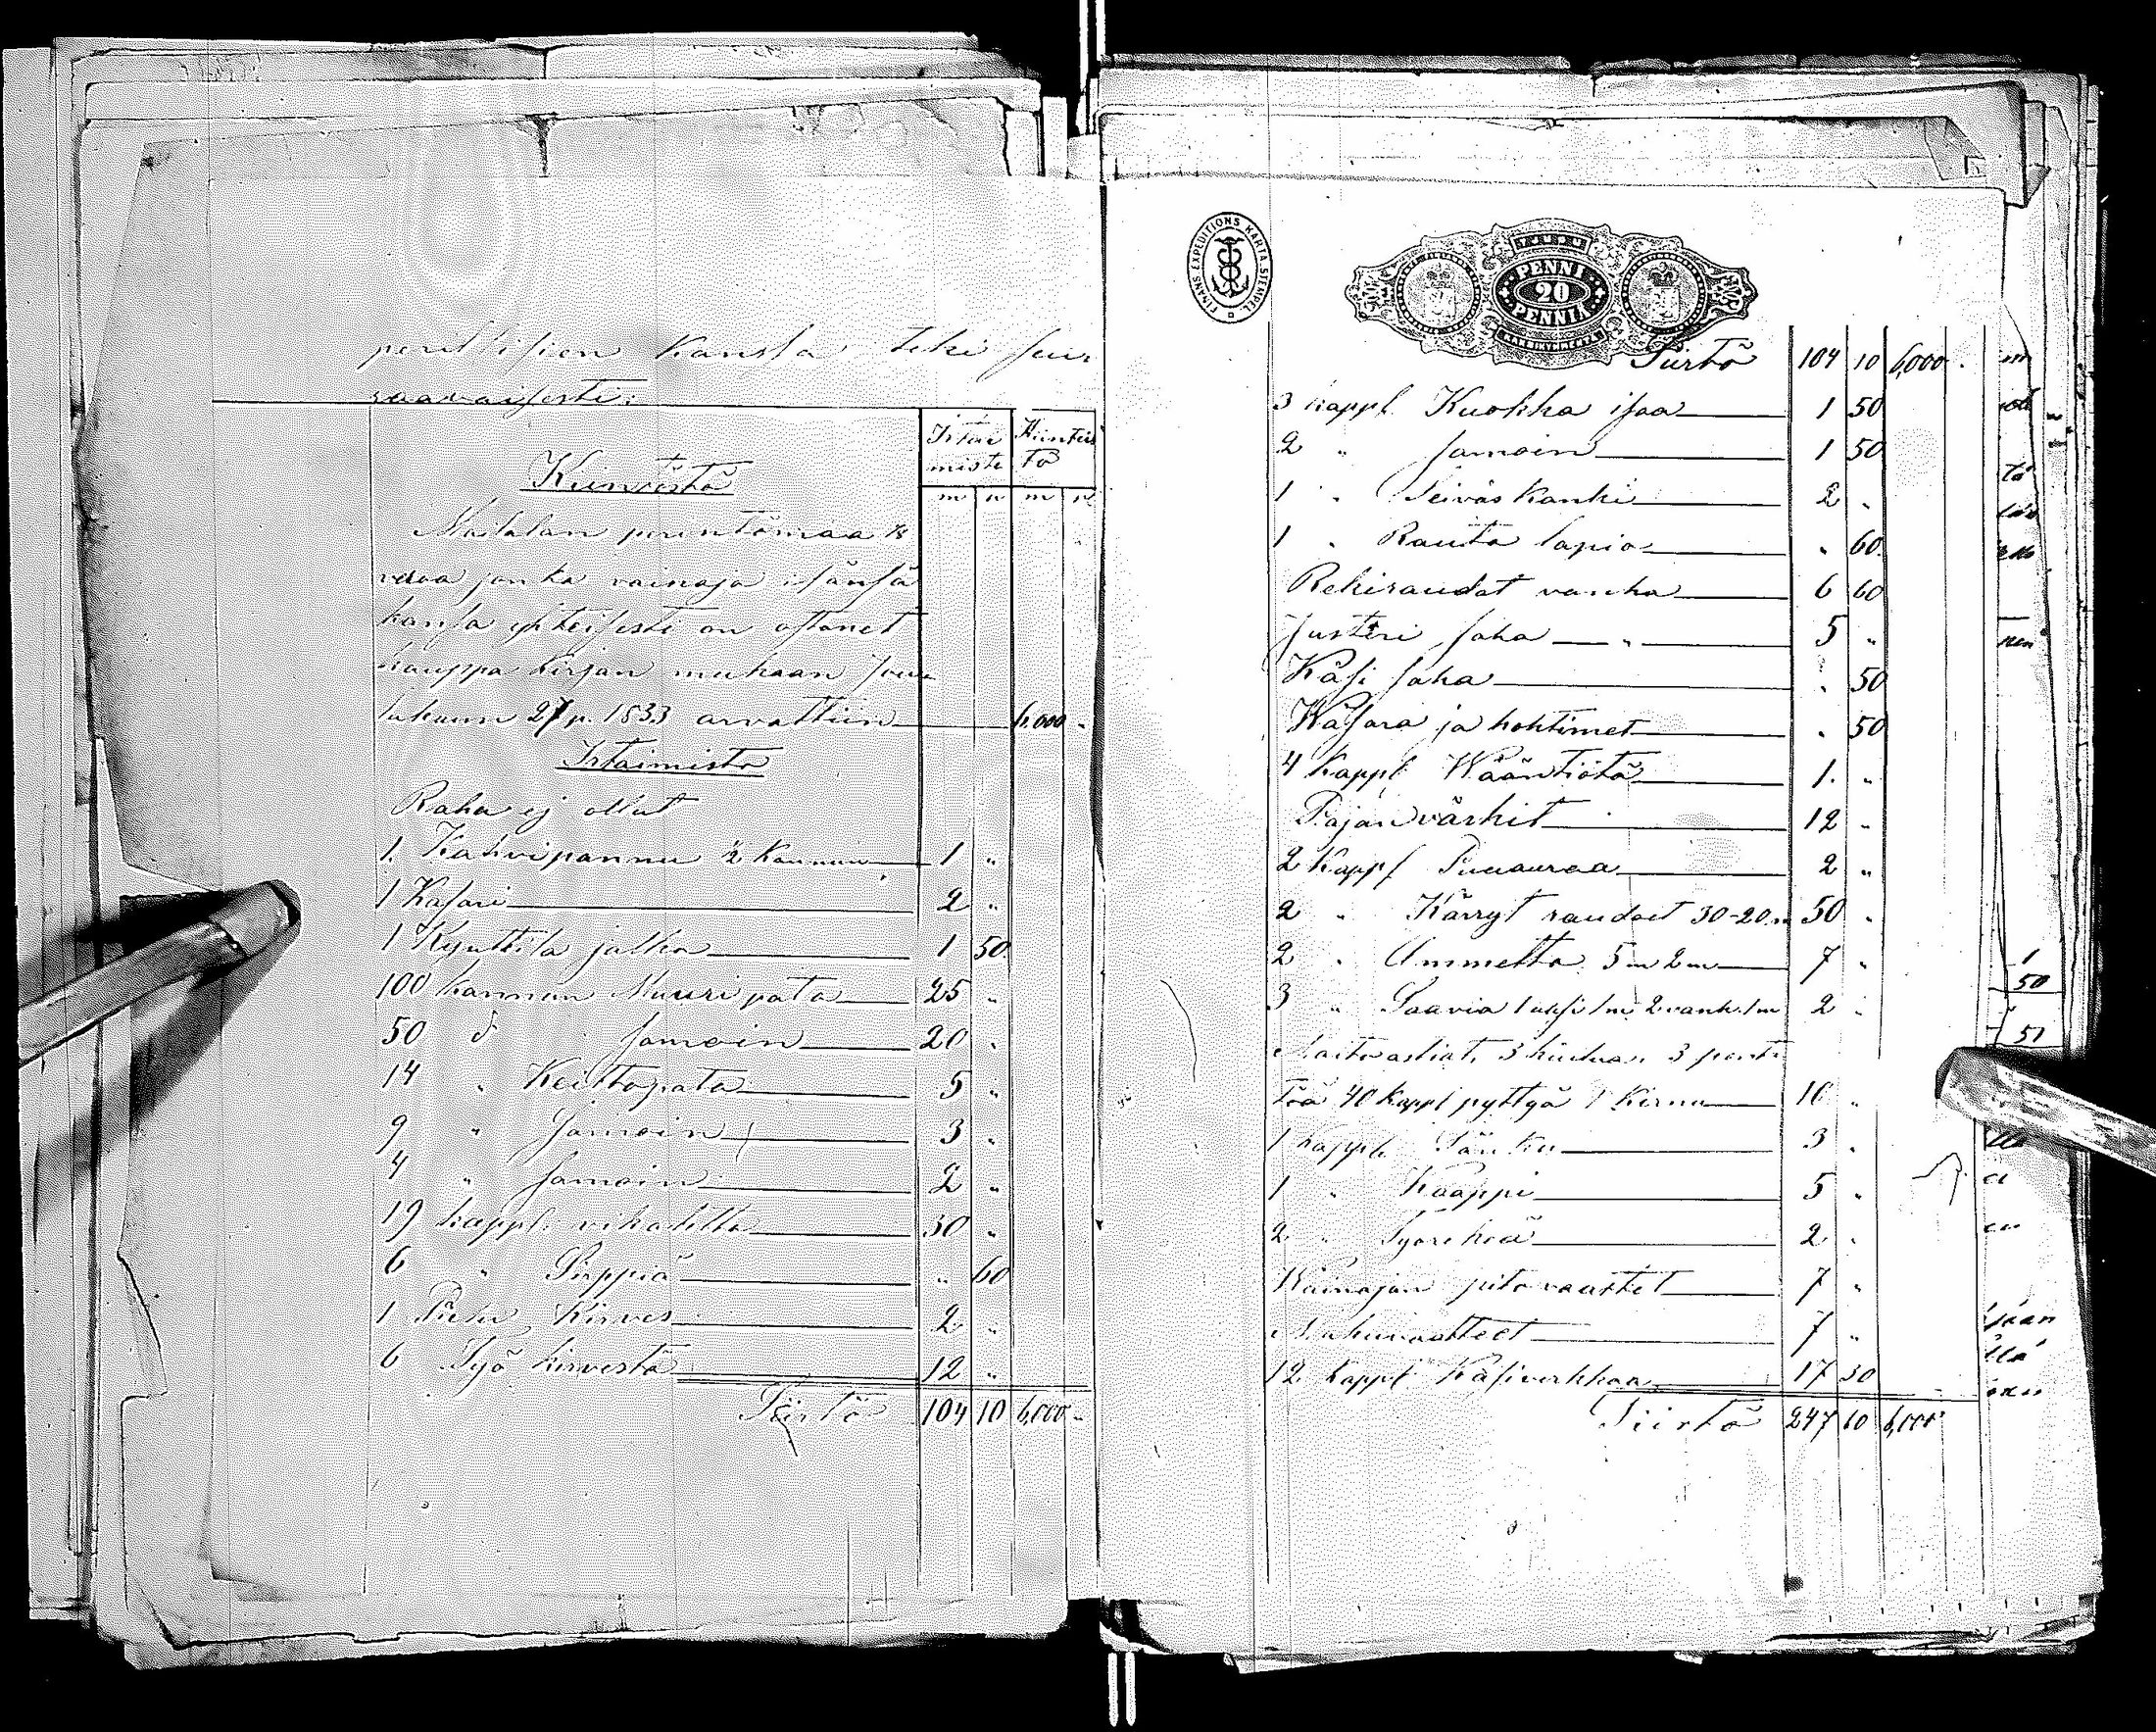 perillisien kansa teki seu-
raavaisesti:
Irtai Kiinteis
misto tö
Kiinteistö
m p m p
Mattalan perintömaa 1/8
veroa jonka vainaja isänsä
kansa yhteisesti on ostanet
kauppa kirjan mukaan Jou
lukuun 27 p. 1833 arvattiin 6,000 "
Irtaimisto
Raha ej ollut
1. Kahvipannu 1/2 kannun 1 "
1 Kasari 2 "
1 Kynttila jalka 1 50
100 kannun Muuripata 25 "
50 d samoin 20 "
14 " Keittopata 5 "
9 " samoin 3 "
4 " samoin 2 "
19 kappl. vikatetta 30 "
6 " Sirppiä " 60
1 Piilu Kirves 2 "
6 Työ kirvestä 12 "
Siirtö 104 10 6,000 "
FINANS EXPEDITIONS KARTA. STEMPEL
PENNI
20
PENNIÄ
Siirtö 104 10 6,000 "
3 kappl. Kuokka isoa 1 50
2 " samoin 1 50
1 " Seiväs kanki 2 "
1 " Rauta lapio " 60
Rekiraudat vanha 6 60
Justeri saha " 5 "
Käsi saha " 50
Wasara ja hohtimet " 50
4 kappl Wääntiötä 1 "
Pajan värkit 12 "
2 Kappl Puuauraa 2 "
2 " Kärryt raudoet 30-20 m 50 "
2 " Ammetta 5 m 2 m 7 "
3 " Saavia 1 uusi 1 m 2 vanh. 1 m 2 "
Maitoastiat, 3 kiulua, 3 pönt
töä 40 kappl pyttyä 1 Kirnu 10 "
1 kappl. Sänky 3 "
1 " Kaappi 5 "
2 " 2 "
Wainajan pito vaattet 7 "
Makuvaatteet 7 "
12 kappl 17 50
Siirtö 247 60 6,000